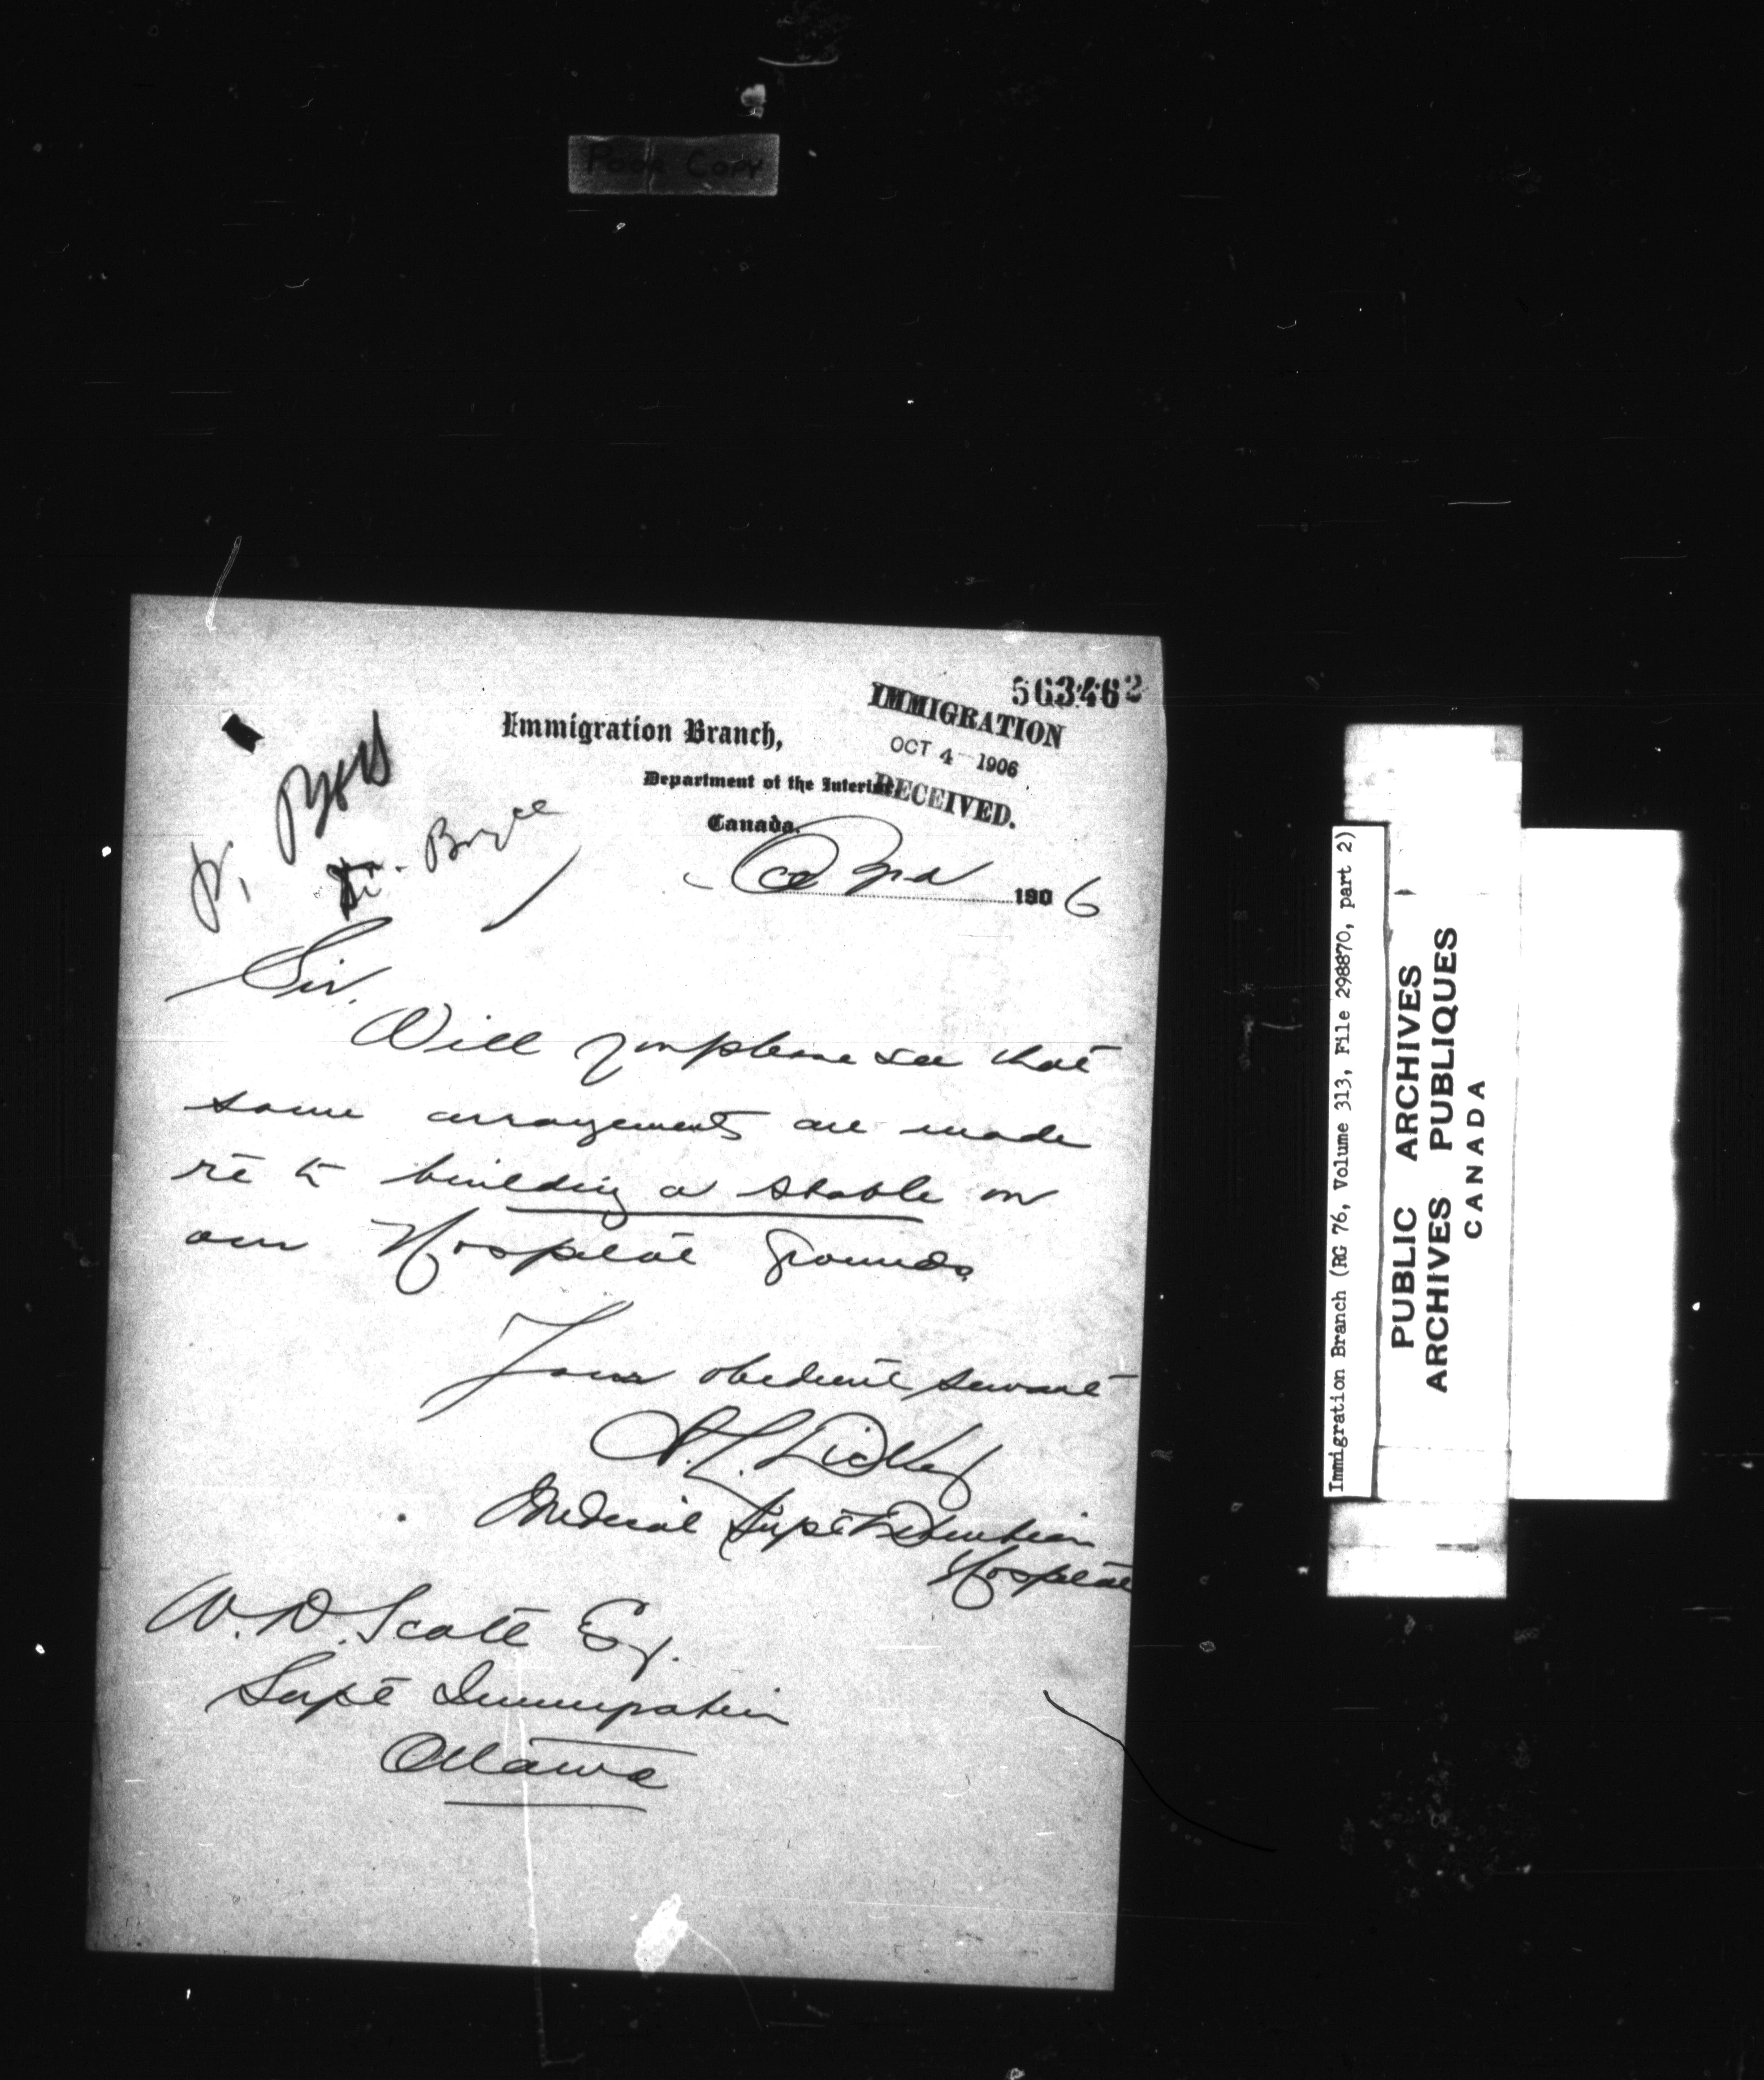 Poor Copy
563462
IMMIGRATION
OCT 4 1906
RECEIVED.
Immigration Branch,
Department of the Interior
Canada.
Dr. Bryce
Oct 3rd 1906
Sir.
Will you please see that
some arrangements are made
re to building a stable on
our Hospital Grounds.
Your obedient servant
Medical Supt Detention
Hospital
W. D. Scott Esq.
Supt Immigration
Ottawa
Immigration Branch (RG 76, Volume 313, File 298870, part 2)
PUBLIC ARCHIVES
ARCHIVES PUBLIQUES
CANADA